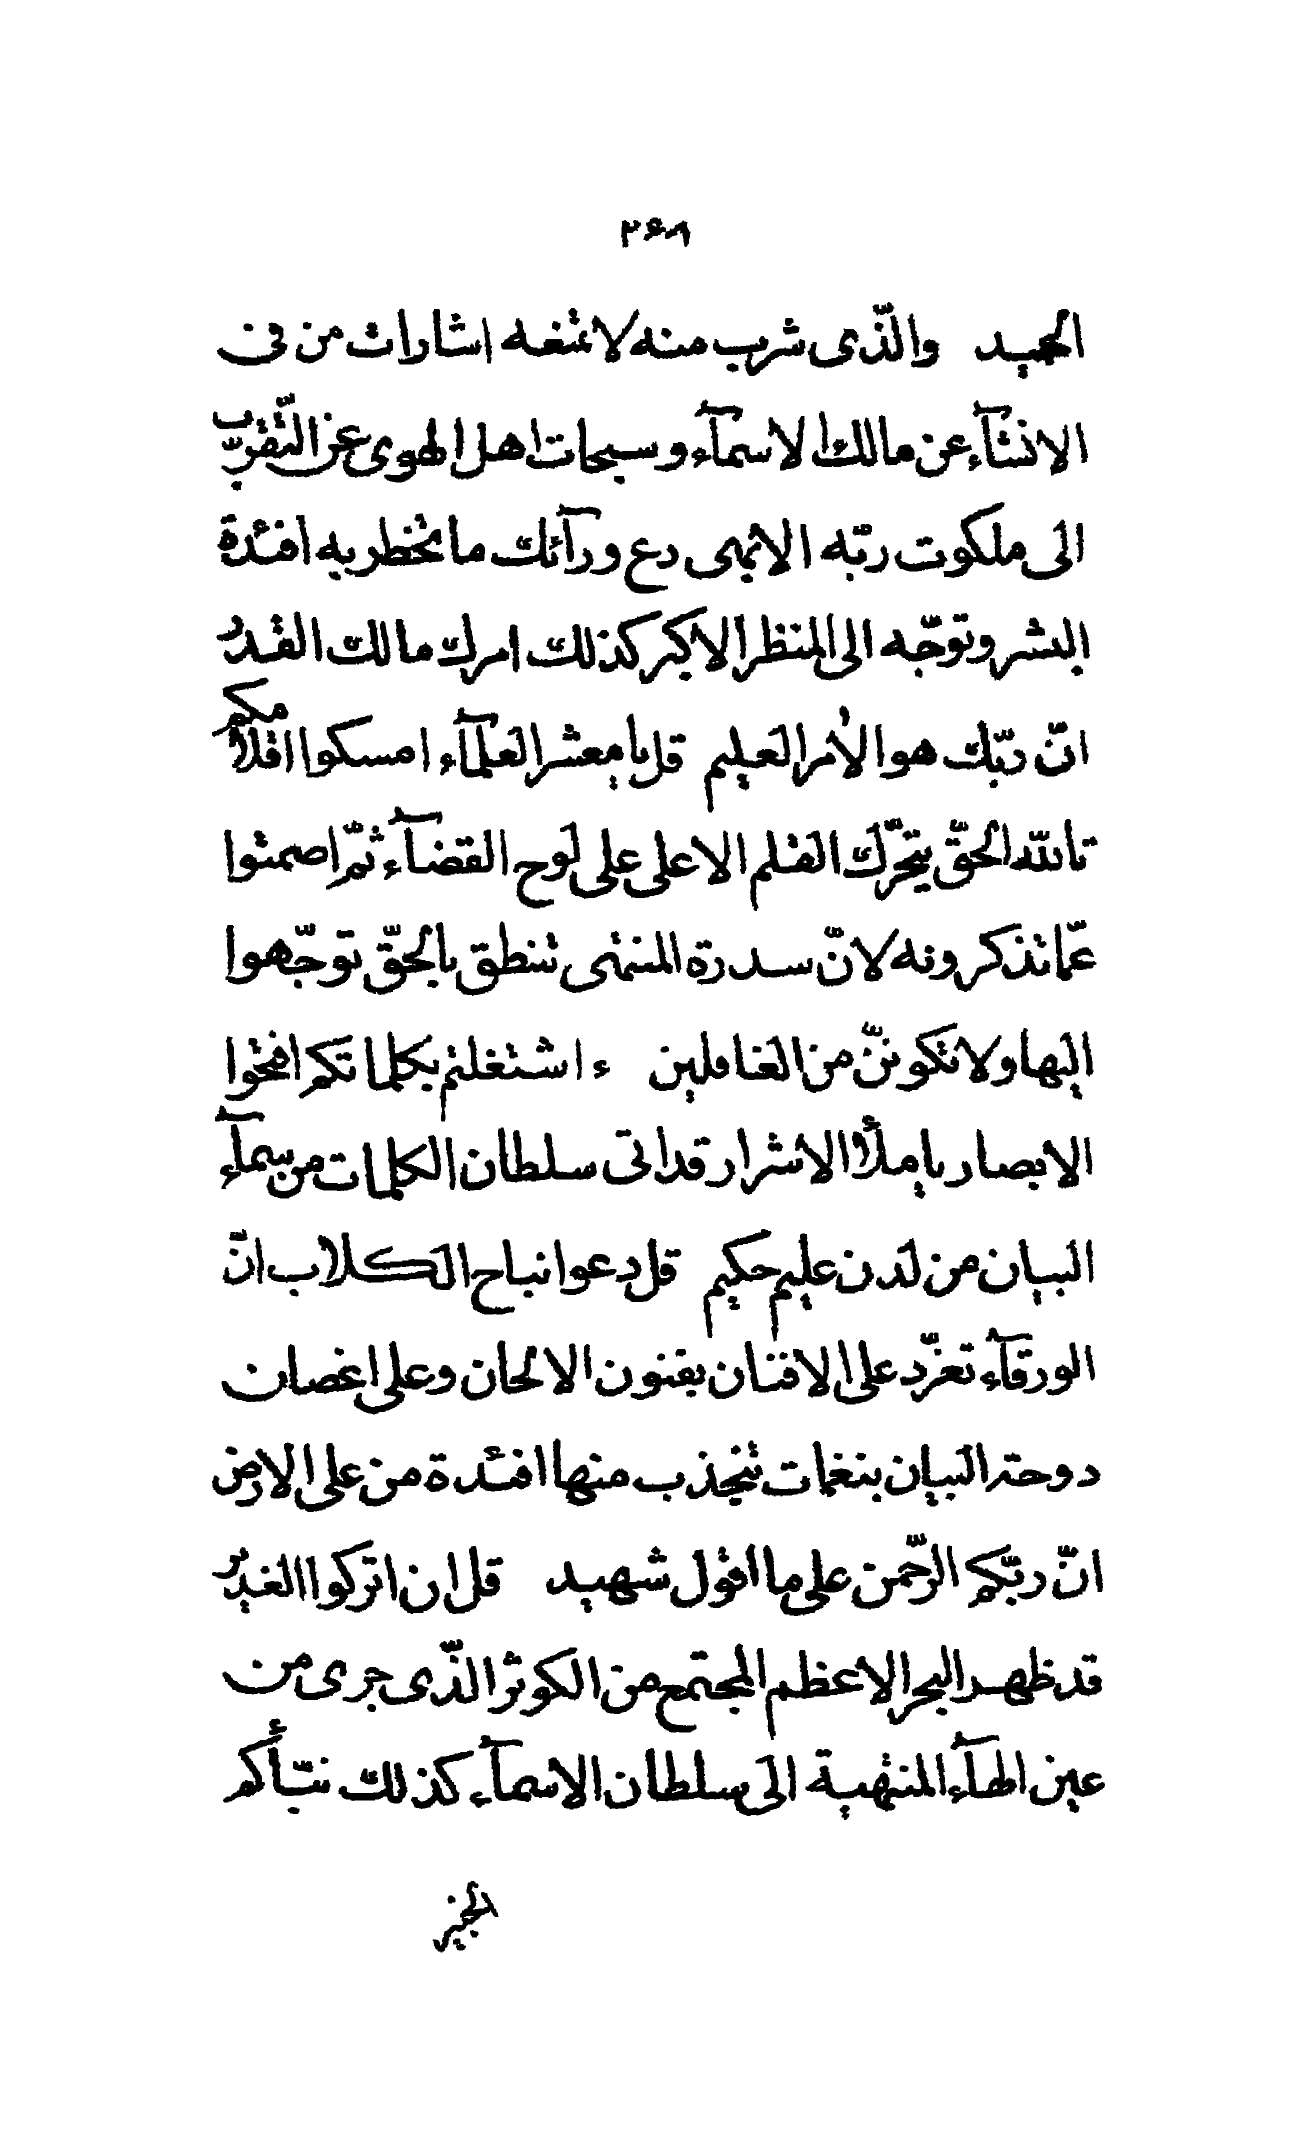 ۲۶۸
الحميد والّذى شرب منه لا تمنعه اشارات من فى
الانشآء عن مالك الاسمآء و سبحات اهل الهوى عن التّقرّب
الى ملكوت ربّه الابهى دع ورآئك ما يخطر به افئدة
البشر و توجّه الى المنظر الاكبر كذلك امرك مالك القدر
انّ ربّك هو الأمر العليم قل يا معشر العلمآء امسكوا اقلامكم
تاللّه الحقّ يتحرّك القلم الاعلى على لوح القضآء ثمّ اصمتوا
عمّا تذكرونه لانّ سدرة المنتهى تنطق بالحقّ توجّهوا
اليها ولا تكوننّ من الغافلين ء اشتغلتم بكلماتكم افتحوا
الابصار يا ملأ الاشرار قد اتى سلطان الكلمات من سمآء
البيان من لدن عليم حكيم قل دعوا نباح الكلاب انّ
الورقآء تغرّد على الافنان بفنون الالحان وعلى اغصان
دوحة البيان بنغمات تنجذب منها افئدة من على الارض
انّ ربّكم الرّحمن على ما اقول شهيد قل ان اتركوا الغدير
قد ظهر البحر الاعظم المجتمع من الكوثر الّذى جرى من
عين الهآء المنتهية الى سلطان الاسمآء كذلك نبّأكم
الخبير